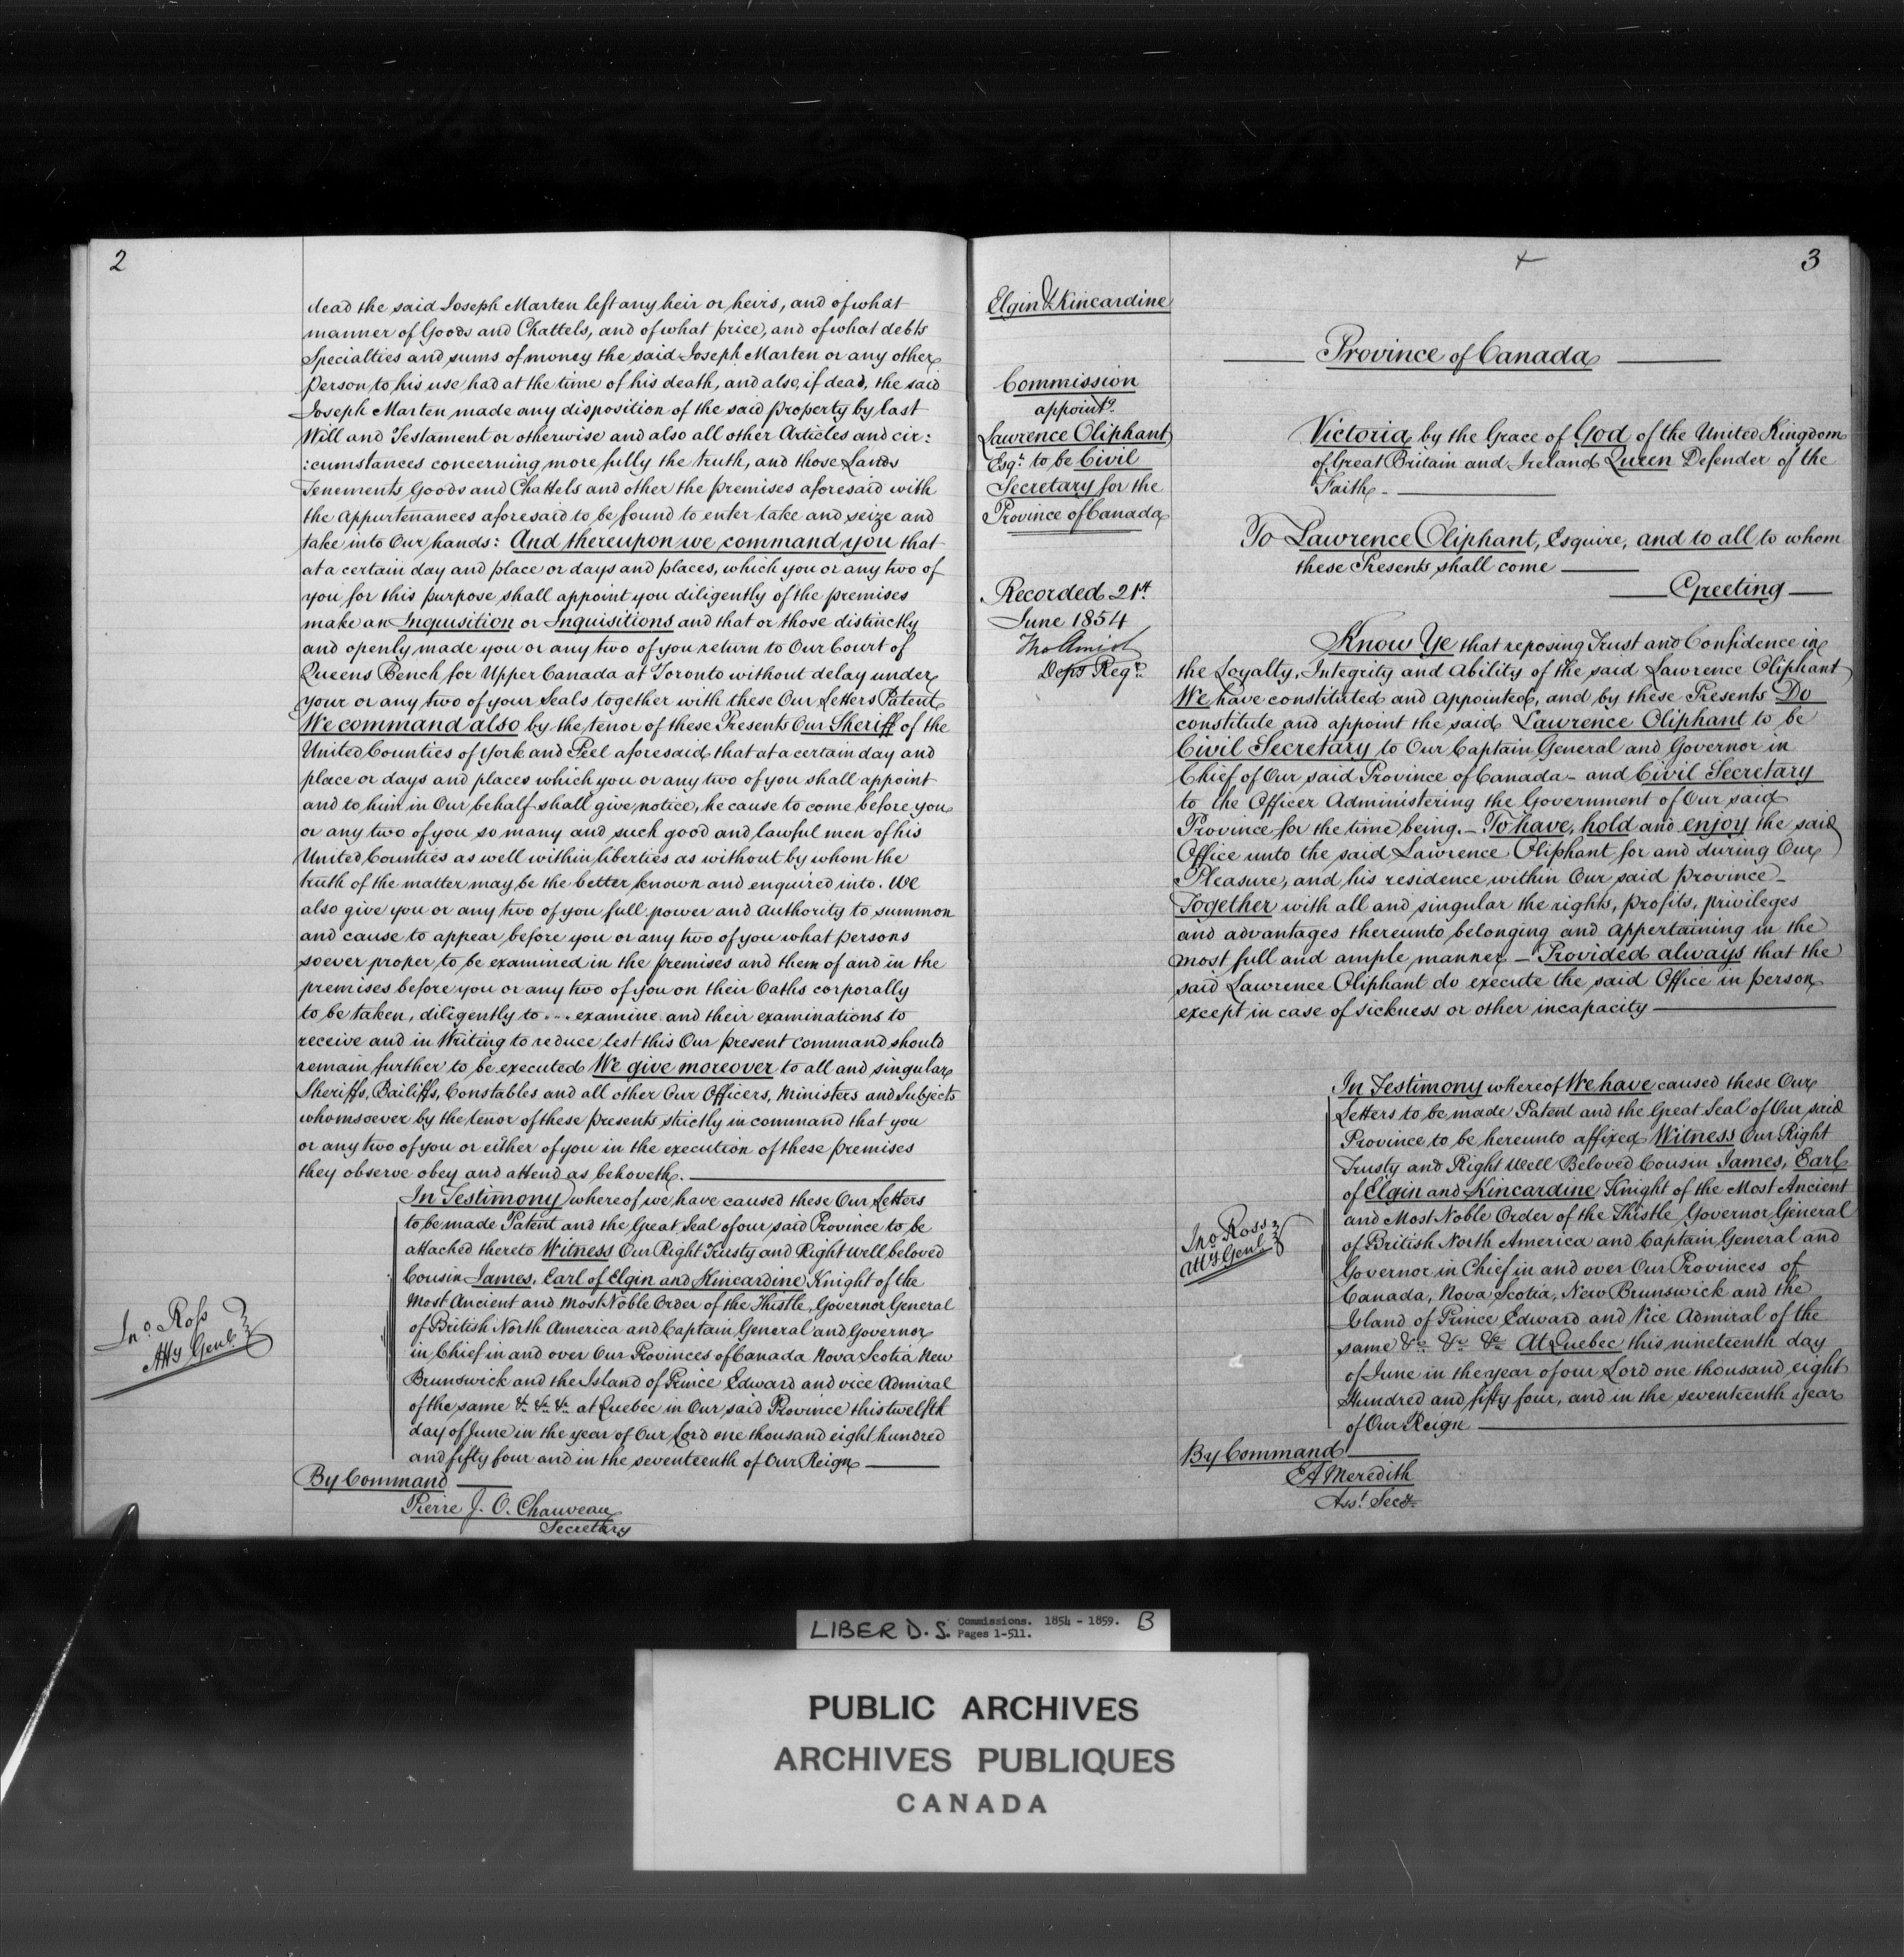 2
dead the said Joseph Marten left any heir or heirs, and of what
manner of Goods and Chattels, and of what price, and of what debts
Specialties and sums of money the said Joseph Marten or any other
person to his use had at the time of his death, and also, if dead, the said
Joseph Marten made any disposition of the said property by last
Will and Testament or otherwise and also all other Articles and cir:
:cumstances concerning more fully the truth, and those Lands
Tenements Goods and Chattels and other the premises aforesaid with
the appurtenances aforesaid to be found to enter take and seize and
take into Our hands: And thereupon we command you that
at a certain day and place or days and places, which you or any two of
you for this purpose shall appoint you diligently of the premises
make an Inquisition or Inquisitions and that or those distinctly
and openly made you or any two of you return to Our Court of
Queens Bench for Upper Canada at Toronto without delay under
your or any two of your Seals together with these Our Letters Patent
We command also by the tenor of these Presents Our Sheriff of the
United Counties of York and Peel aforesaid, that at a certain day and
place or days and places which you or any two of you shall appoint
and to him in Our behalf shall give notice, he cause to come before you
or any two of you so many and such good and lawful men of his
United Counties as well within liberties as without by whom the
truth of the matter may be the better known and enquired into. We
also give you or any two of you full power and authority to summon
and cause to appear before you or any two of you what persons
soever proper to be examined in the premises and them of and in the
premises before you or any two of you on their Oaths corporally
to be taken, diligently to ... examine and their examinations to
receive and in Writing to reduce lest this Our present command should
remain further to be executed We give moreover to all and singular
Sheriffs, Bailiffs, Constables and all other Our Officers, Ministers and Subjects
whomsoever by the tenor of these presents strictly in command that you
or any two of you or either of you in the execution of these premises
they observe obey and attend as behoveth.
In Testimony whereof we have caused these Our Letters
to be made Patent and the Great Seal of our said Province to be
attached thereto Witness Our Right Trusty and Right Well beloved
Cousin James, Earl of Elgin and Kincardine Knight of the
Most Ancient and Most Noble Order of the Thistle, Governor General
of British North America and Captain General and Governor
in Chief in and over Our Provinces of Canada Nova Scotia New
Brunswick and the Island of Prince Edward and vice Admiral
of the same &c &c &c at Quebec in Our said Province this twelfth
day of June in the year of Our Lord one thousand eight hundred
and fifty four and in the seventeenth of Our Reign
Jno. Ross
Atty Genl.
By Command
Pierre J. O. Chauveau
Secretary
3
Elgin & Kincardine
Commission
appointg
Lawrence Oliphant
Esqr. to be Civil
Secretary for the
Province of Canada
Recorded 21st
June 1854
Tho Amiot
Depy Regr.
Province of Canada
Victoria by the Grace of God of the United Kingdom
of Great Britain and Ireland Queen Defender of the
Faith
To Lawrence Oliphant, Esquire, and to all to whom
these Presents shall come
Greeting
Know Ye that reposing Trust and Confidence in
the Loyalty, Integrity and Ability of the said Lawrence Oliphant
We have constituted and appointed, and by these Presents Do
constitute and appoint the said Lawrence Oliphant to be
Civil Secretary to Our Captain General and Governor in
Chief of Our said Province of Canada - and Civil Secretary
to the Officer Administering the Government of Our said
Province for the time being. - To have, hold and enjoy the said
Office unto the said Lawrence Oliphant for and during Our
Pleasure, and his residence within Our said province -
Together with all and singular the rights, profits, privileges
and advantages thereunto belonging and appertaining in the
most full and ample manner. - Provided always that the
said Lawrence Oliphant do execute the said Office in person
except in case of sickness or other incapacity
In Testimony whereof We have caused these Our
Letters to be made Patent and the Great Seal of Our said
Province to be hereunto affixed Witness Our Right
Trusty and Right Well Beloved Cousin James, Earl
of Elgin and Kincardine Knight of the Most Ancient
and Most Noble Order of the Thistle Governor General
of British North America and Captain General and
Governor in Chief in and over Our Provinces of
Canada, Nova Scotia, New Brunswick and the
Island of Prince Edward and Vice Admiral of the
same &c &c &c At Quebec this nineteenth day
of June in the year of our Lord one thousand eight
Hundred and fifty four, and in the seventeenth year
of Our Reign
Jno Ross
Atty Genl.
By Command
EA Meredith
Asst. Secy
LIBER D. S. Commissions. 1854 - 1859. B
Pages 1-511.
PUBLIC ARCHIVES
ARCHIVES PUBLIQUES
CANADA